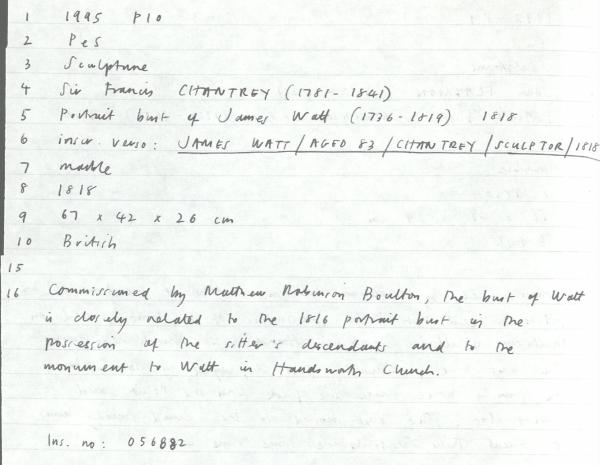 1 1995 P10
2 PeS
3 Sculpture
4 Sir Francis CHANTREY (1781-1841)
5 Portrait bust of James Watt (1736-1819) 1818
6 inscr. verso: JAMES WATT/AGED 83/CHANTREY/SCULPTOR/1818
7 marble
8 1818
9 67 x 42 x 26 cm
10 British
15
16 Commissioned by Matthew Robinson Boulton, the bust of Watt
is closely related to the 1816 portrait bust in the
possession of the sitter's descendants and to the
monument to Watt in Handsworth Church.
Ins. no: 056882